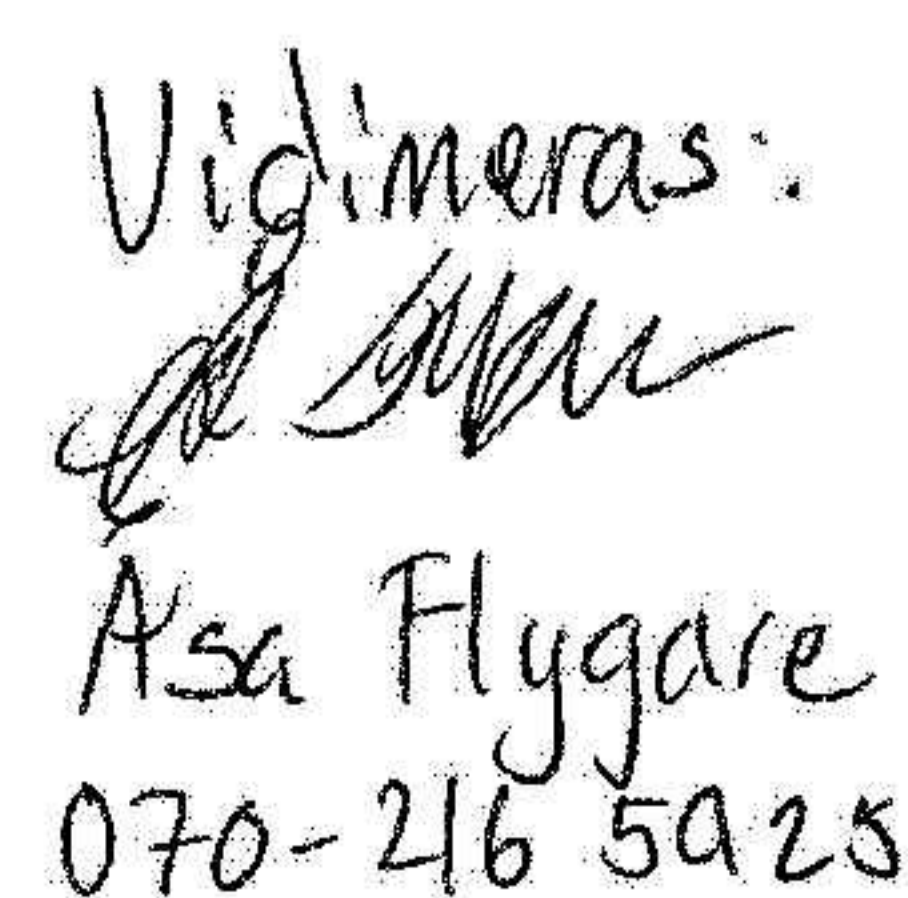 Vidimeras:
Åsa Flygare
070-216 5925